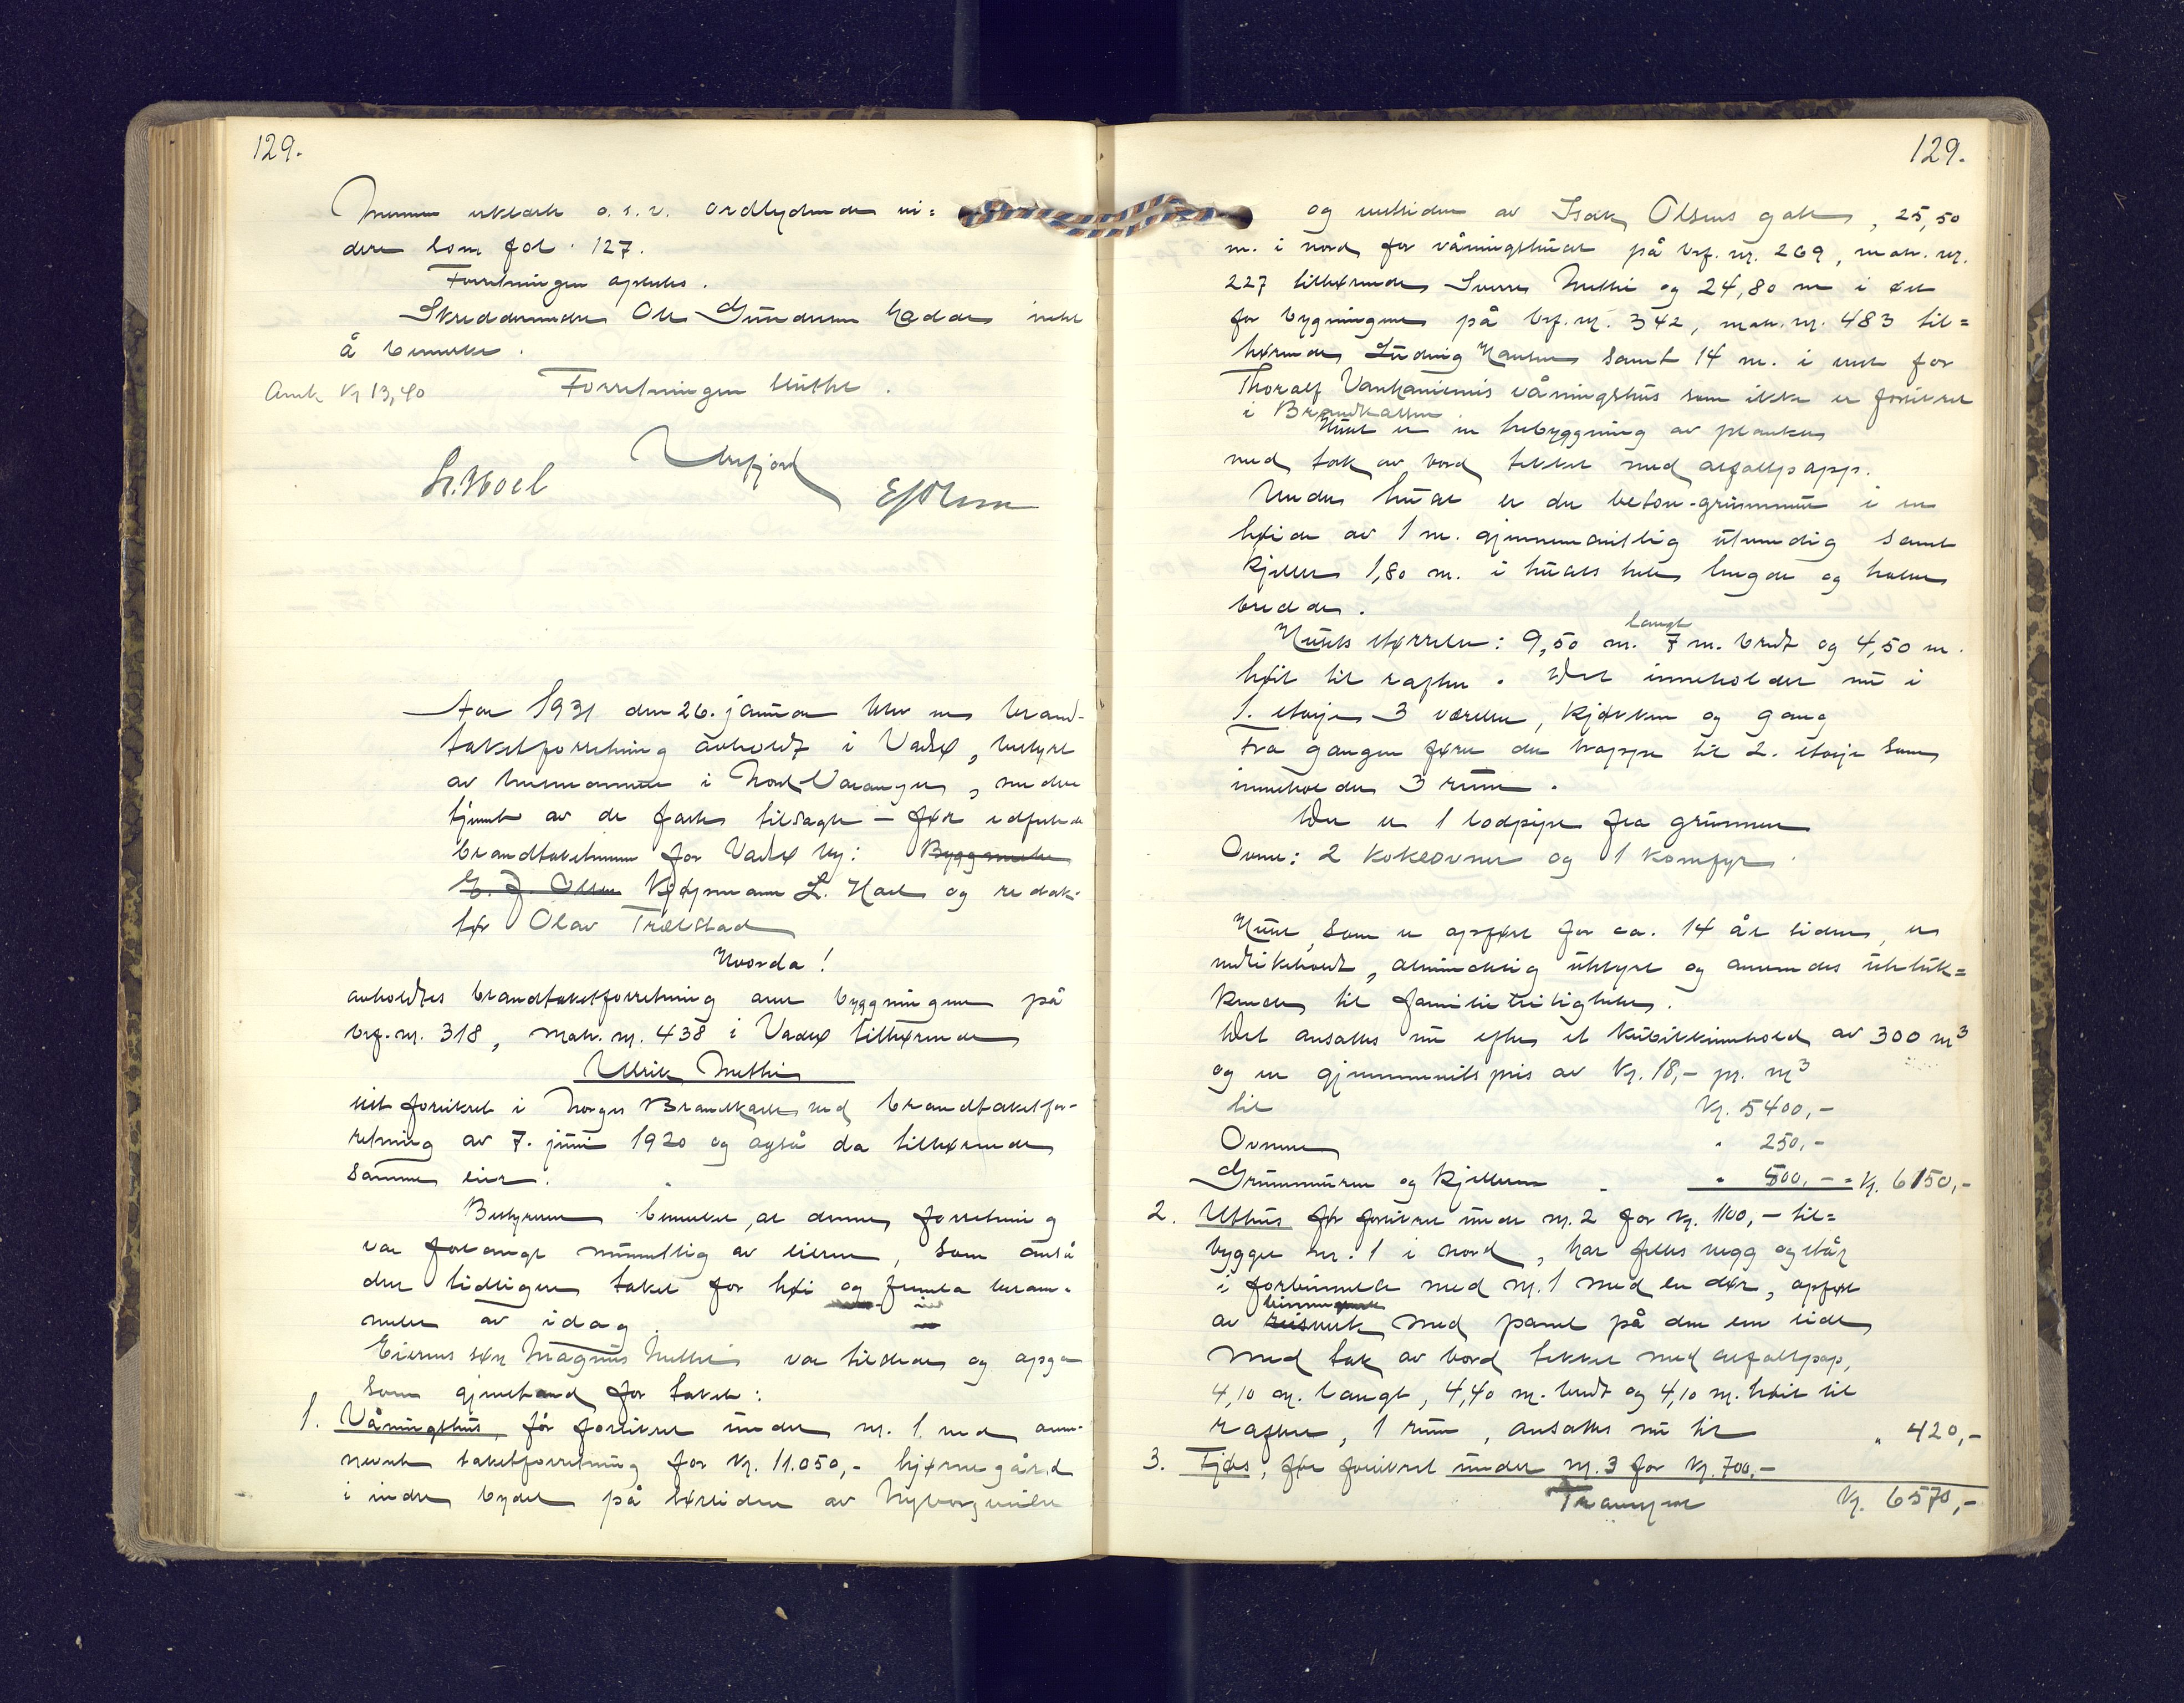 129.
Mennene erklærte o.s.v. ordlydende vi=
dere som fol. 127.
Forretningen oplestes.
Skreddermester Ole Gundersen hadde intet
å bemerke.
Anm. kr 13,40 Forretningen sluttet.
L. Hoel
E J Olsen
Aar 1931 den 26. januar blev en brand-
takstforretning avholdt i Vadsø, bestyrt
av lensmannen i Nord Varanger, med be-
tjent av de faste tilsagte - før edfestede
brandtakstmenn for Vadsø by: Byggmester
E. J. Olsen Kjøpmann L. Hoel og redak-
tør Olav Trælstad
Hvorda!
avholdtes brandtakstforretning over bygningene på
brf. nr. 318, matr. nr. 438 i Vadsø tilhørende
Ulrik Methi
sist forsikret i Norges Brandkasse ved brandtakstfor-
retning av 7. juni 1920 og også da tilhørende
samme eier.
Bestyreren bemerket, at denne forretning
var forlangt mundtlig av eieren, som anså
den tidligere takst for høi og
av idag.
Eierens søn Magnus Methi var tilstede og opga
som gjenstand for takst:
1. Våningshus, før forsikret under nr. 1 ved oven-
nevnte takstforretning for kr. 11.050,- hjørnegård
i indre bydel på østsiden av Nyborgveien
129.
og siden av Isak Olsens gate, 25,50
m. i nord for våningshuset på brf. nr. 269, matr. nr.
227 tilhørende Sverre Methi og 24,80 m i øst
for bygningene på brf. nr. 342, matr. nr. 483 til=
hørende Ludvig Hansen samt 14 m. i vest for
Thoralf Vankaniemis våningshus som ikke er forsikret
i Brandkassen.
Huset er en trebygning av planker
med tak av bord tekket med asfaltpapp.
Under huset er der beton-grunnmur i en
høide av 1 m. gjennemsnittlig utvendig samt
kjeller 1,80 m. i husets hele lengde og halve
bredde.
Husets størrelse: 9,50 m. langt 7 m. bredt og 4,50 m.
høit til raften. Det inneholder nu i
1. etasje 3 værelser, kjøkken og gang
Fra gangen fører der trappe til 2. etasje som
inneholder 3 rum.
Der er 1 lodpipe fra grunnen
Ovner: 2 kokeovner og 1 komfyr.
Huset, som er opført for ca. 14 år siden, er
vedlikeholdt, almindelig utstyrt og anvendes uteluk=
kende til familieleiligheter.
Det ansattes nu efter et kubikkinnhold av 300 m³
og en gjennemsnitspris av kr. 18,- pr. m³
til kr. 5400,-
Ovnene " 250,-
Grunnmuren og kjelleren " 500,- = kr. 6150,-
2. Uthus før forsikret under nr. 2 for kr. 1100,- til=
bygget nr. 1 i nord, har felles vegg og står
i forbindelse med nr. 1 med en dør, opført
av bindingsverk reisverk med panel på den ene side
med tak av bord tekket med asfaltpap,
4,10 m. langt, 4,40 m. bredt og 4,10 m. høit til
raften, 1 rum, ansattes nu til " 420,-
3. Fjøs, før forsikret under nr. 3 for kr. 700,-
Transport kr. 6570,-